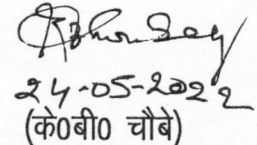 24-05-2022
(के0बी0 चौबे)